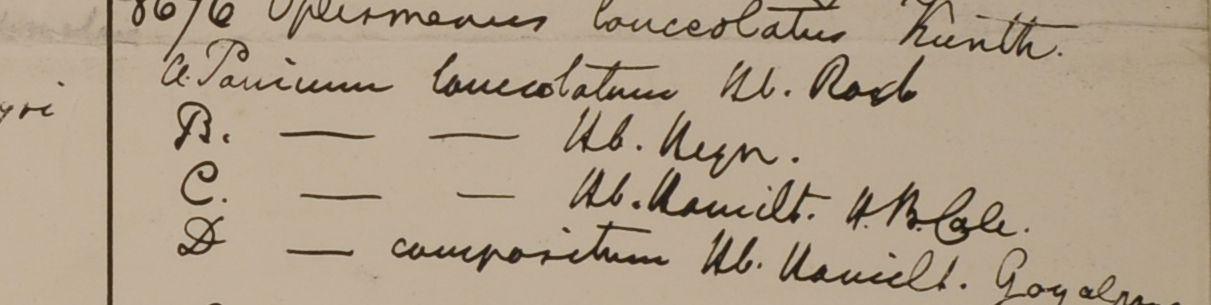 8676 Oplismenus lanceolatus Kunth.
a. Panicum lanceolatum Hb. Roxb
B. — — Hb. Heyn.
C. — — Hb. Hamilt. H.B. Calc.
D — compositum Hb. Hamilt.